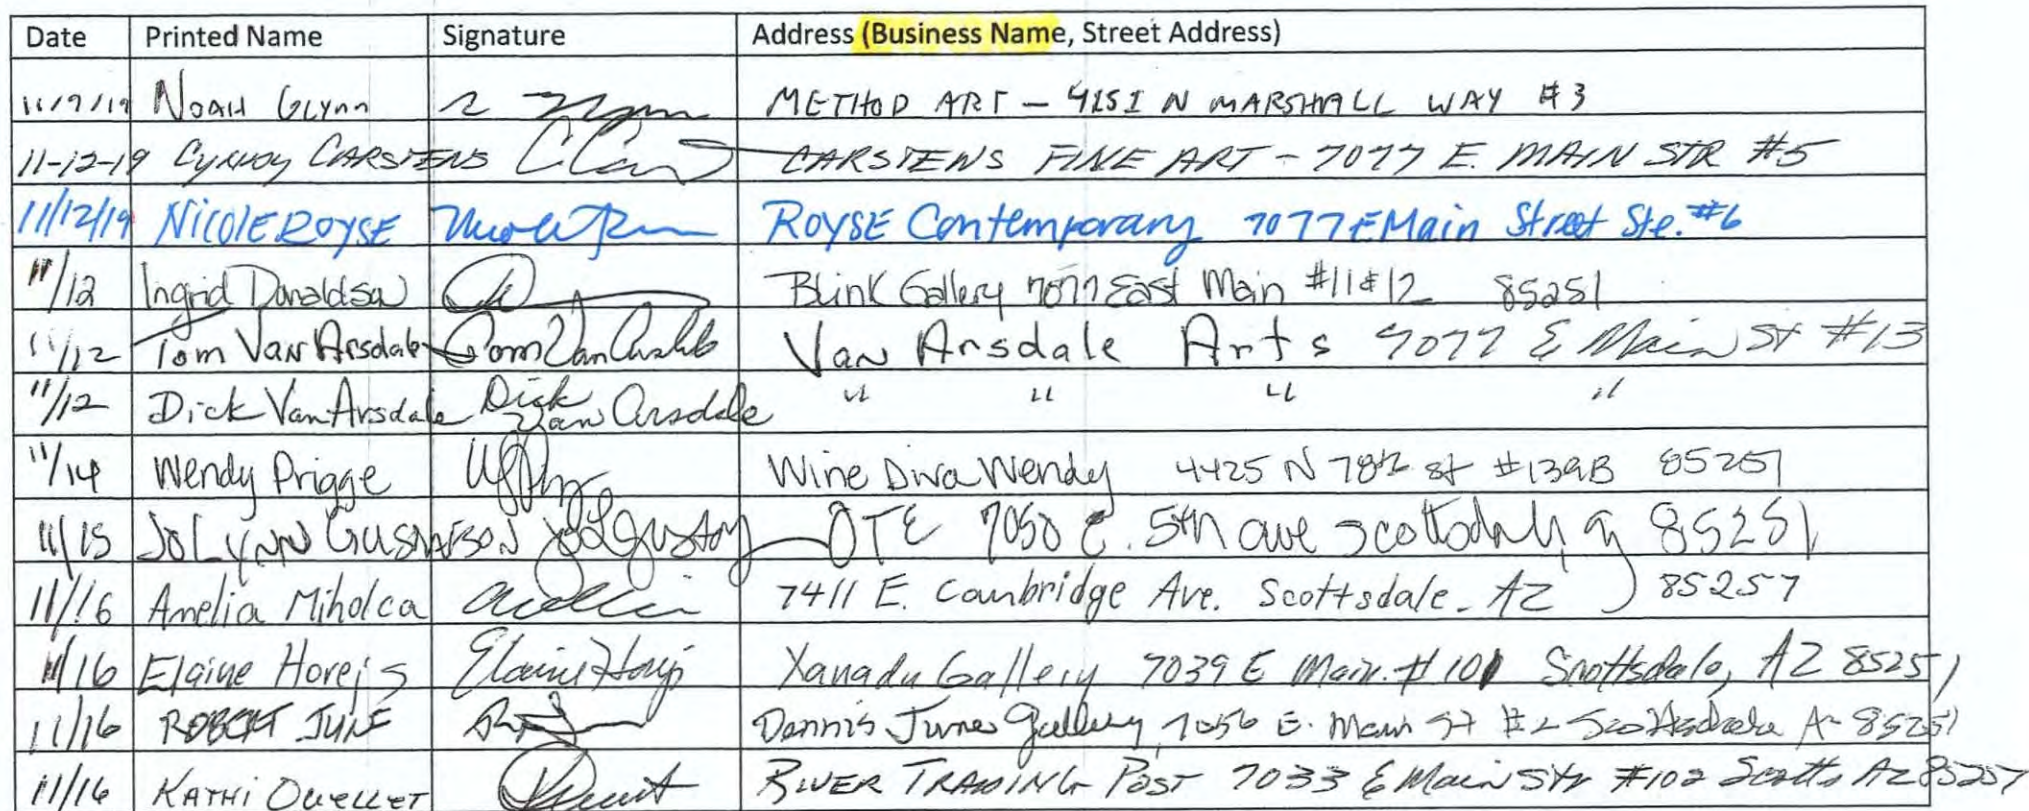 Date Printed Name Signature Address (Business Name, Street Address)
11/7/19 NOAH GLYNN METHOD ART - 4151 N MARSHALL WAY #3
11-12-19 CYNDY CARSTENS CARSTENS FINE ART - 7077 E. MAIN STR #5
11/12/19 NICOLE ROYSE ROYSE Contemporary 7077 E Main Street Ste. #6
11/12 Ingrid Donaldson Blink Gallery 7077 East Main #11 & 12 85251
11/12 Tom Van Arsdale Tom Van Arsdale Van Arsdale Arts 7077 E Main St #13
11/12 Dick Van Arsdale Dick Van Arsdale " " " "
11/14 Wendy Prigge Wine Diva Wendy 4425 N 78th St #139B 85251
11/15 JOLYNN GUSTAFSON OTE 7050 E. 5th ave Scottsdale, az 85251
11/16 Amelia Miholca 7411 E. Cambridge Ave. Scottsdale, AZ 85257
11/16 Elaine Horejs Elaine Horejs Xanadu Gallery 7039 E Main. #101 Scottsdale, AZ 85251
11/16 ROBERT JUNE Dennis June Gallery, 7056 E. Main St #2 Scottsdale Az 85251
11/16 KATHI OUELLET RIVER TRADING POST 7033 E Main Str #102 Scotts AZ 85257